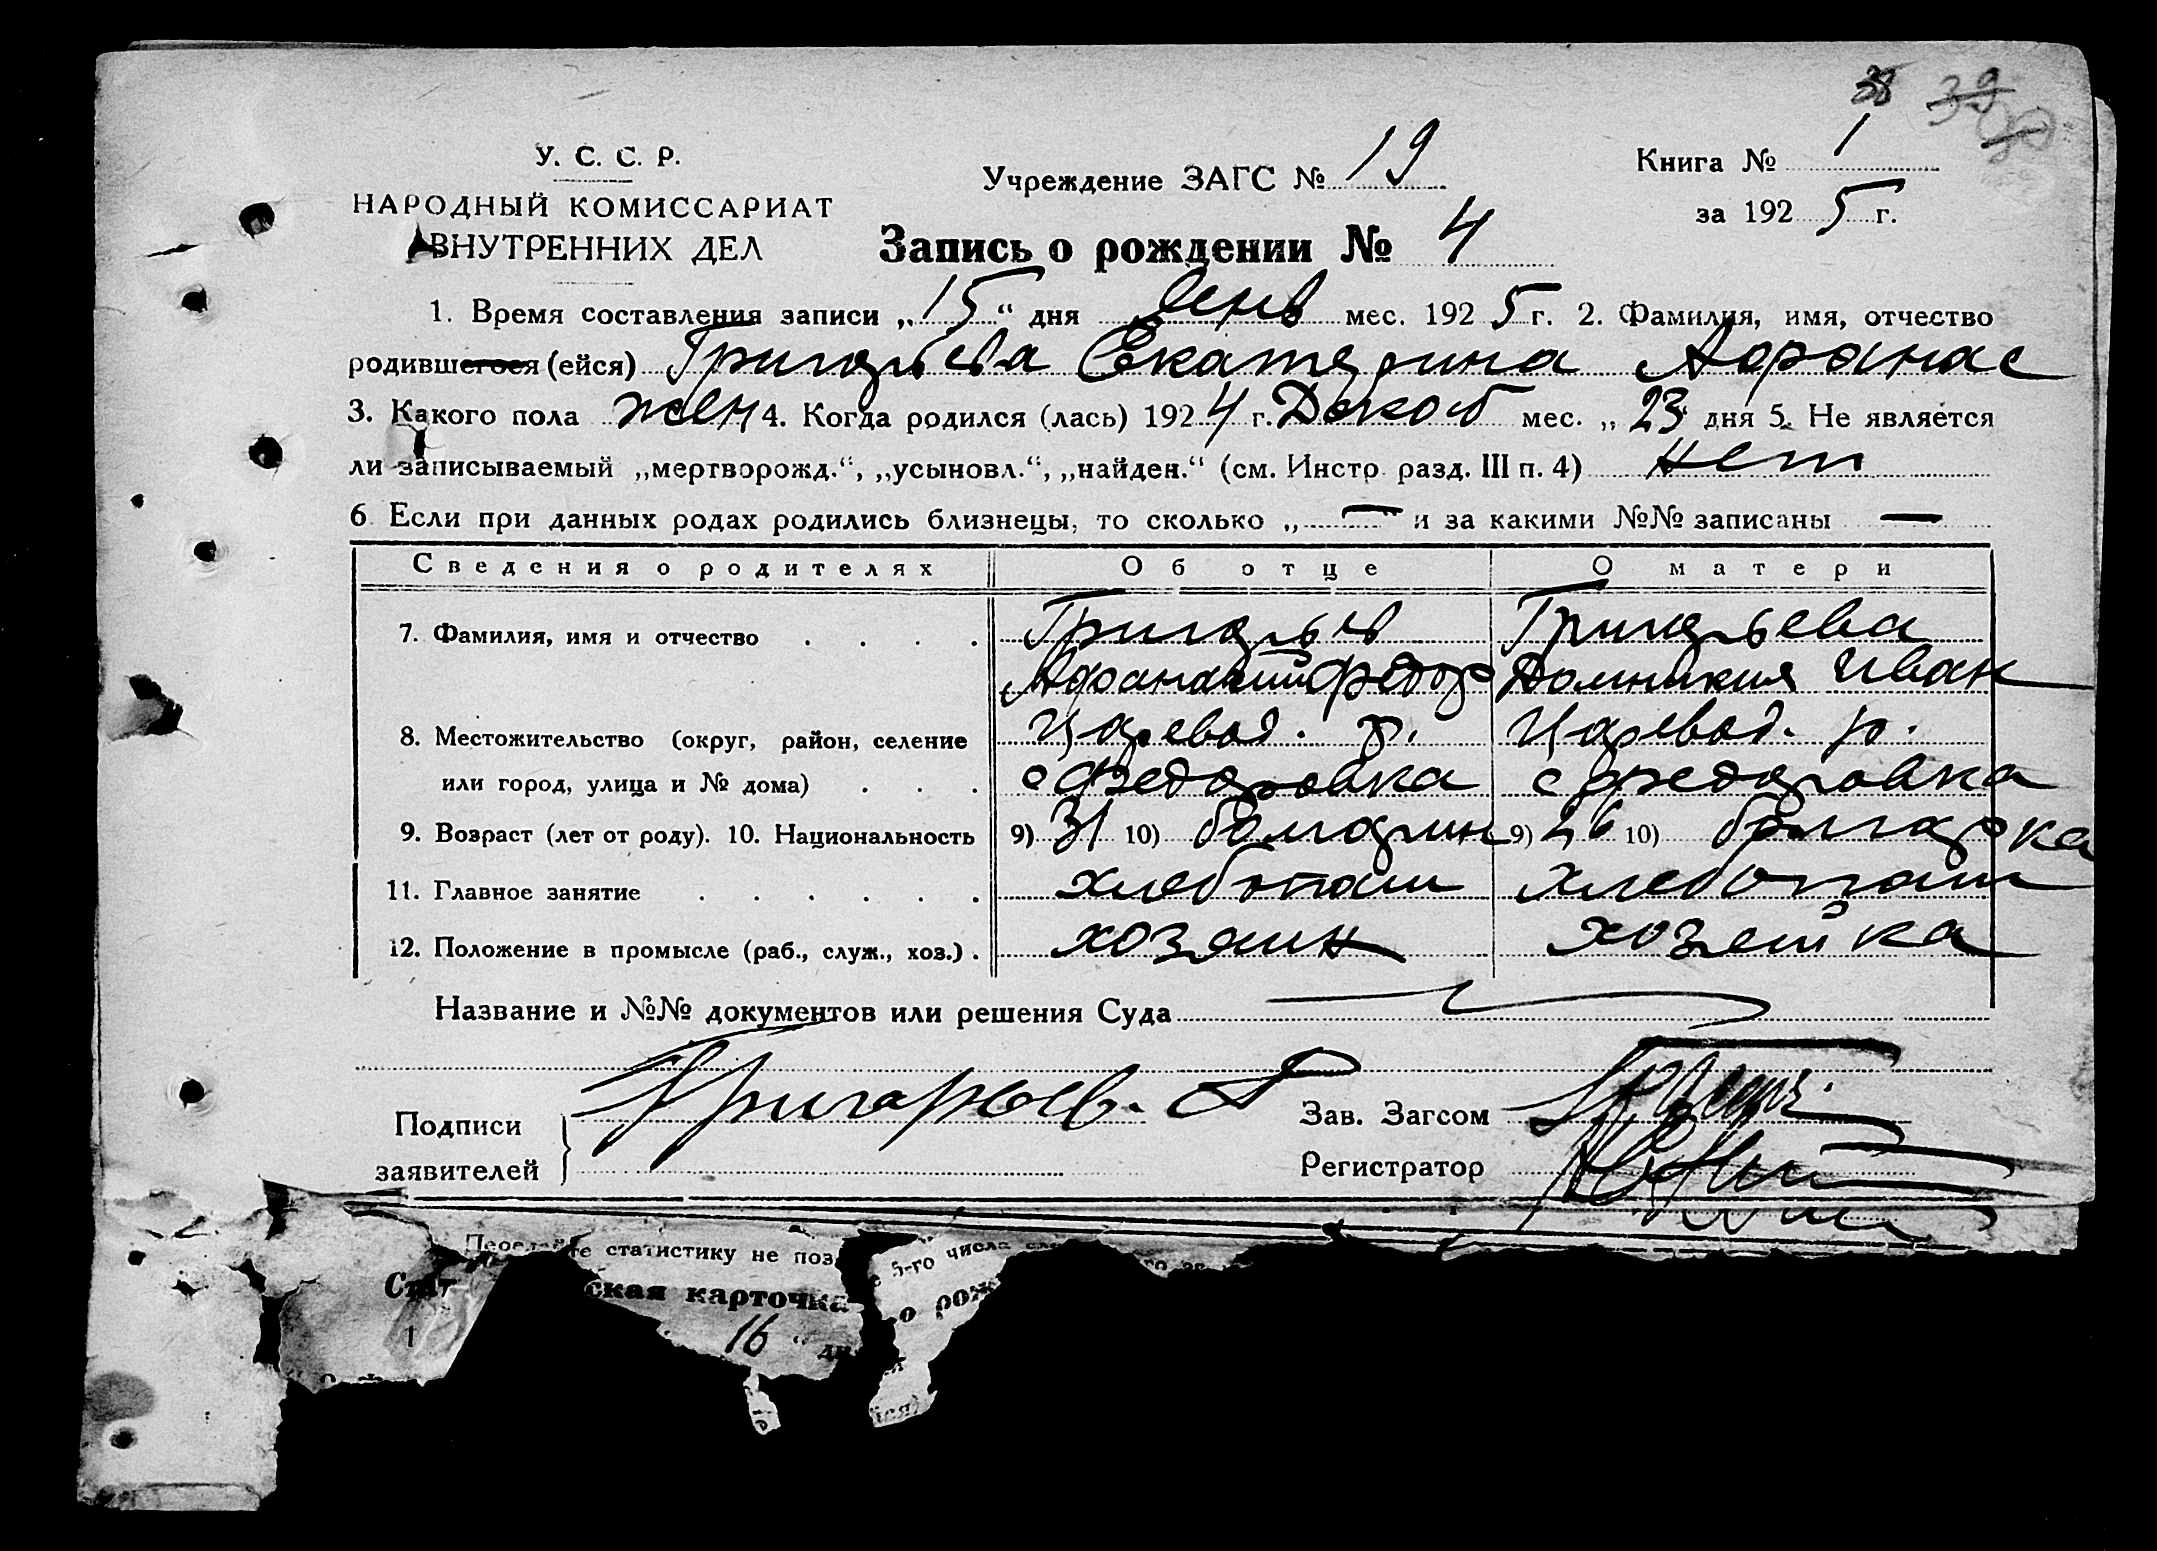 38 39
У. С. С. Р.
НАРОДНЫЙ КОМИССАРИАТ
ВНУТРЕННИХ ДЕЛ
Учреждение ЗАГС № 19
Книга № 1
за 1925 г.
Запись о рождении № 4
1. Время составления записи „15“ дня Янв мес. 1925 г. 2. Фамилия, имя, отчество
родившегося (ейся) Григорьева Екатерина Афанас
3. Какого пола жен 4. Когда родился (лась) 1924 г. Декаб мес. „23 дня 5. Не является
ли записываемый „мертворожд.“, „усыновл.“, „найден.“ (см. Инстр. разд. III п. 4) нет
6 Если при данных родах родились близнецы, то сколько „—“ и за какими №№ записаны —
Сведения о родителях Об отце О матери
7. Фамилия, имя и отчество . . . . Григорьев Григорьева
Афанасий Федор Домникия Иван
8. Местожительство (округ, район, селение Царевод. р. Царевод. р.
или город, улица и № дома) . . . с Федоровка с Федоровка
9. Возраст (лет от роду). 10. Национальность 9) 31 10) болгарин 9) 26 10) болгарка
11. Главное занятие . . . . . . хлебопаш хлебопаш
12. Положение в промысле (раб., служ., хоз.) . хозяин хозейка
Название и №№ документов или решения Суда
Подписи
заявителей
Григорьев. А
Зав. Загсом
Регистратор
те статистику не поз 5-го числа
Стат ская карточка о рож
1 16 “ дн